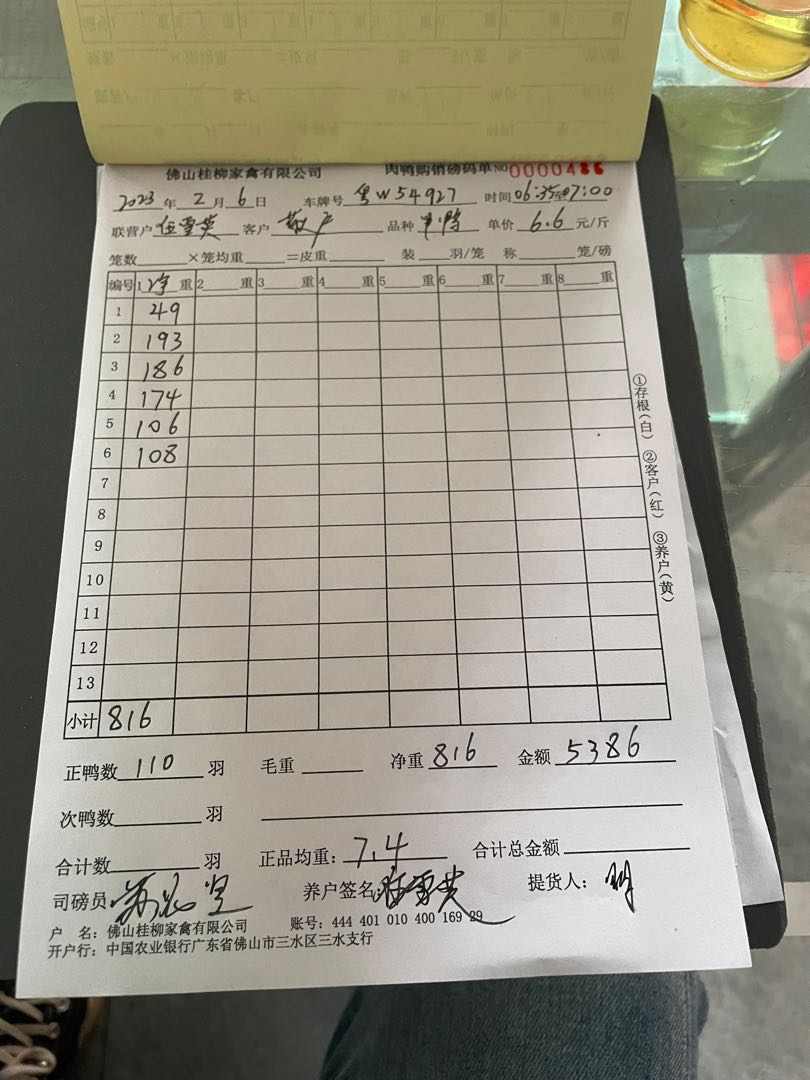 佛山桂柳家禽有限公司 肉鸭购销磅码单 NO 0000486
2023年2月6日 车牌号 粤W54927 时间 06:35至07:00
联营户 伍雪英 客户 散户 品种 单价 6.6 元/斤
笼数 ×笼均重 =皮重 装 羽/笼 称 笼/磅
编号 1 净 重 2 重 3 重 4 重 5 重 6 重 7 重 8 重
1 49
2 193
3 186
4 174
5 106
6 108
7
8
9
10
11
12
13
小计 816
①存根(白) ②客户(红) ③养户(黄)
正鸭数 110 羽 毛重 净重 816 金额 5386
次鸭数 羽
合计数 羽 正品均重: 7.4 合计总金额
司磅员: 养户签名: 伍雪英 提货人: 明
户 名: 佛山桂柳家禽有限公司 账号: 444 401 010 400 169 29
开户行: 中国农业银行广东省佛山市三水区三水支行